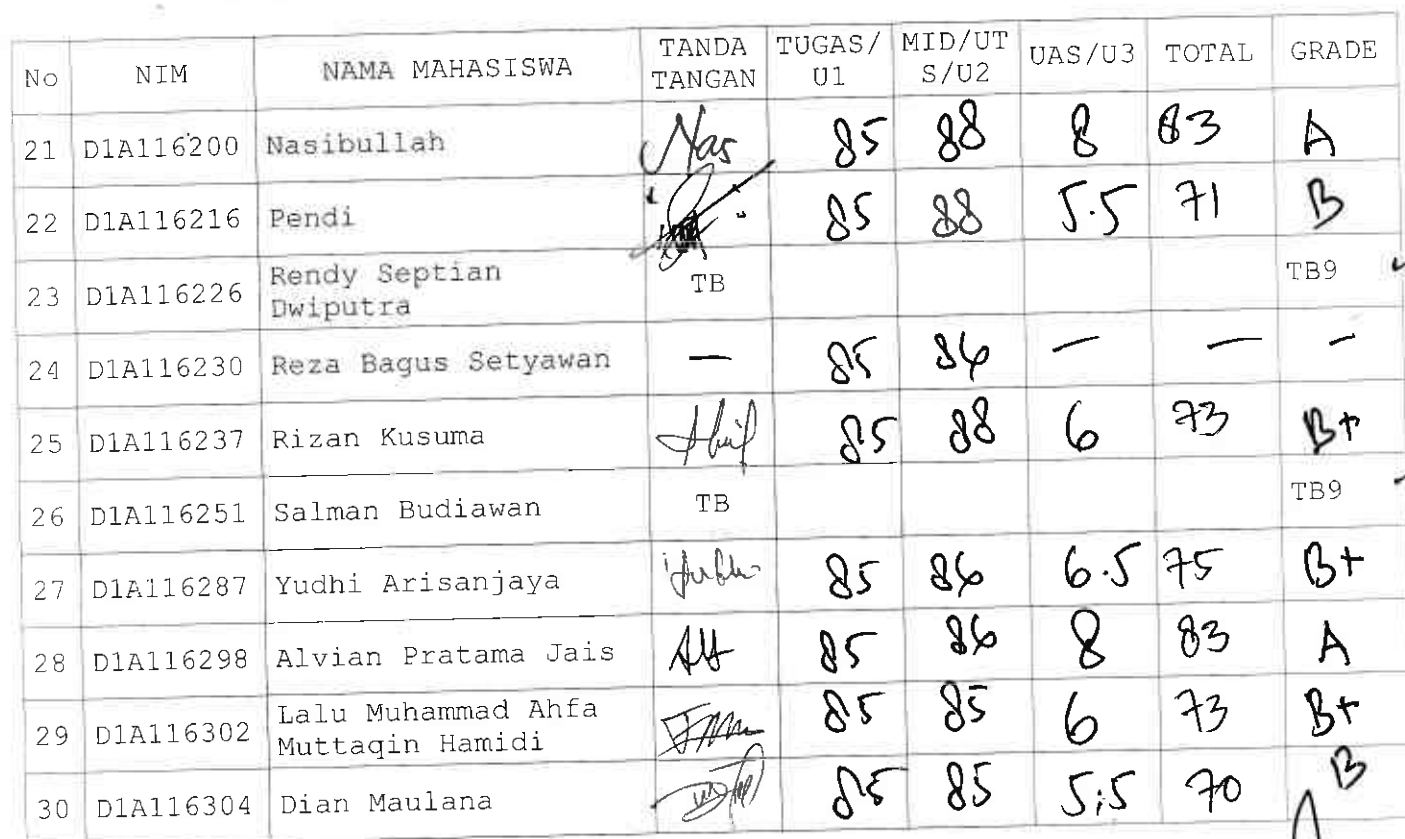 No NIM NAMA MAHASISWA TANDA TANGAN TUGAS/ U1 MID/UT S/U2 UAS/U3 TOTAL GRADE
21 D1A116200 Nasibullah Nas 85 88 8 83 A
22 D1A116216 Pendi 85 88 5.5 71 B
23 D1A116226 Rendy Septian Dwiputra TB TB9
24 D1A116230 Reza Bagus Setyawan — 85 86 — — —
25 D1A116237 Rizan Kusuma 85 88 6 73 B+
26 D1A116251 Salman Budiawan TB TB9
27 D1A116287 Yudhi Arisanjaya 85 86 6.5 75 B+
28 D1A116298 Alvian Pratama Jais 85 86 8 83 A
29 D1A116302 Lalu Muhammad Ahfa Muttaqin Hamidi 85 85 6 73 B+
30 D1A116304 Dian Maulana 85 85 5,5 70 B